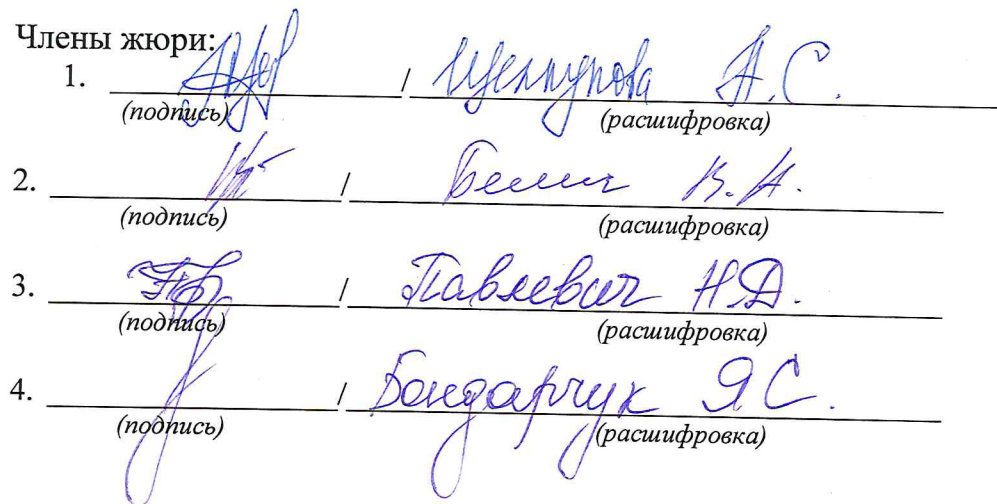 Члены жюри:
1. / А.С.
(подпись) (расшифровка)
2. / Белич В.А.
(подпись) (расшифровка)
3. / Павлевич Н.Д.
(подпись) (расшифровка)
4. / Бондарчук Я С.
(подпись) (расшифровка)